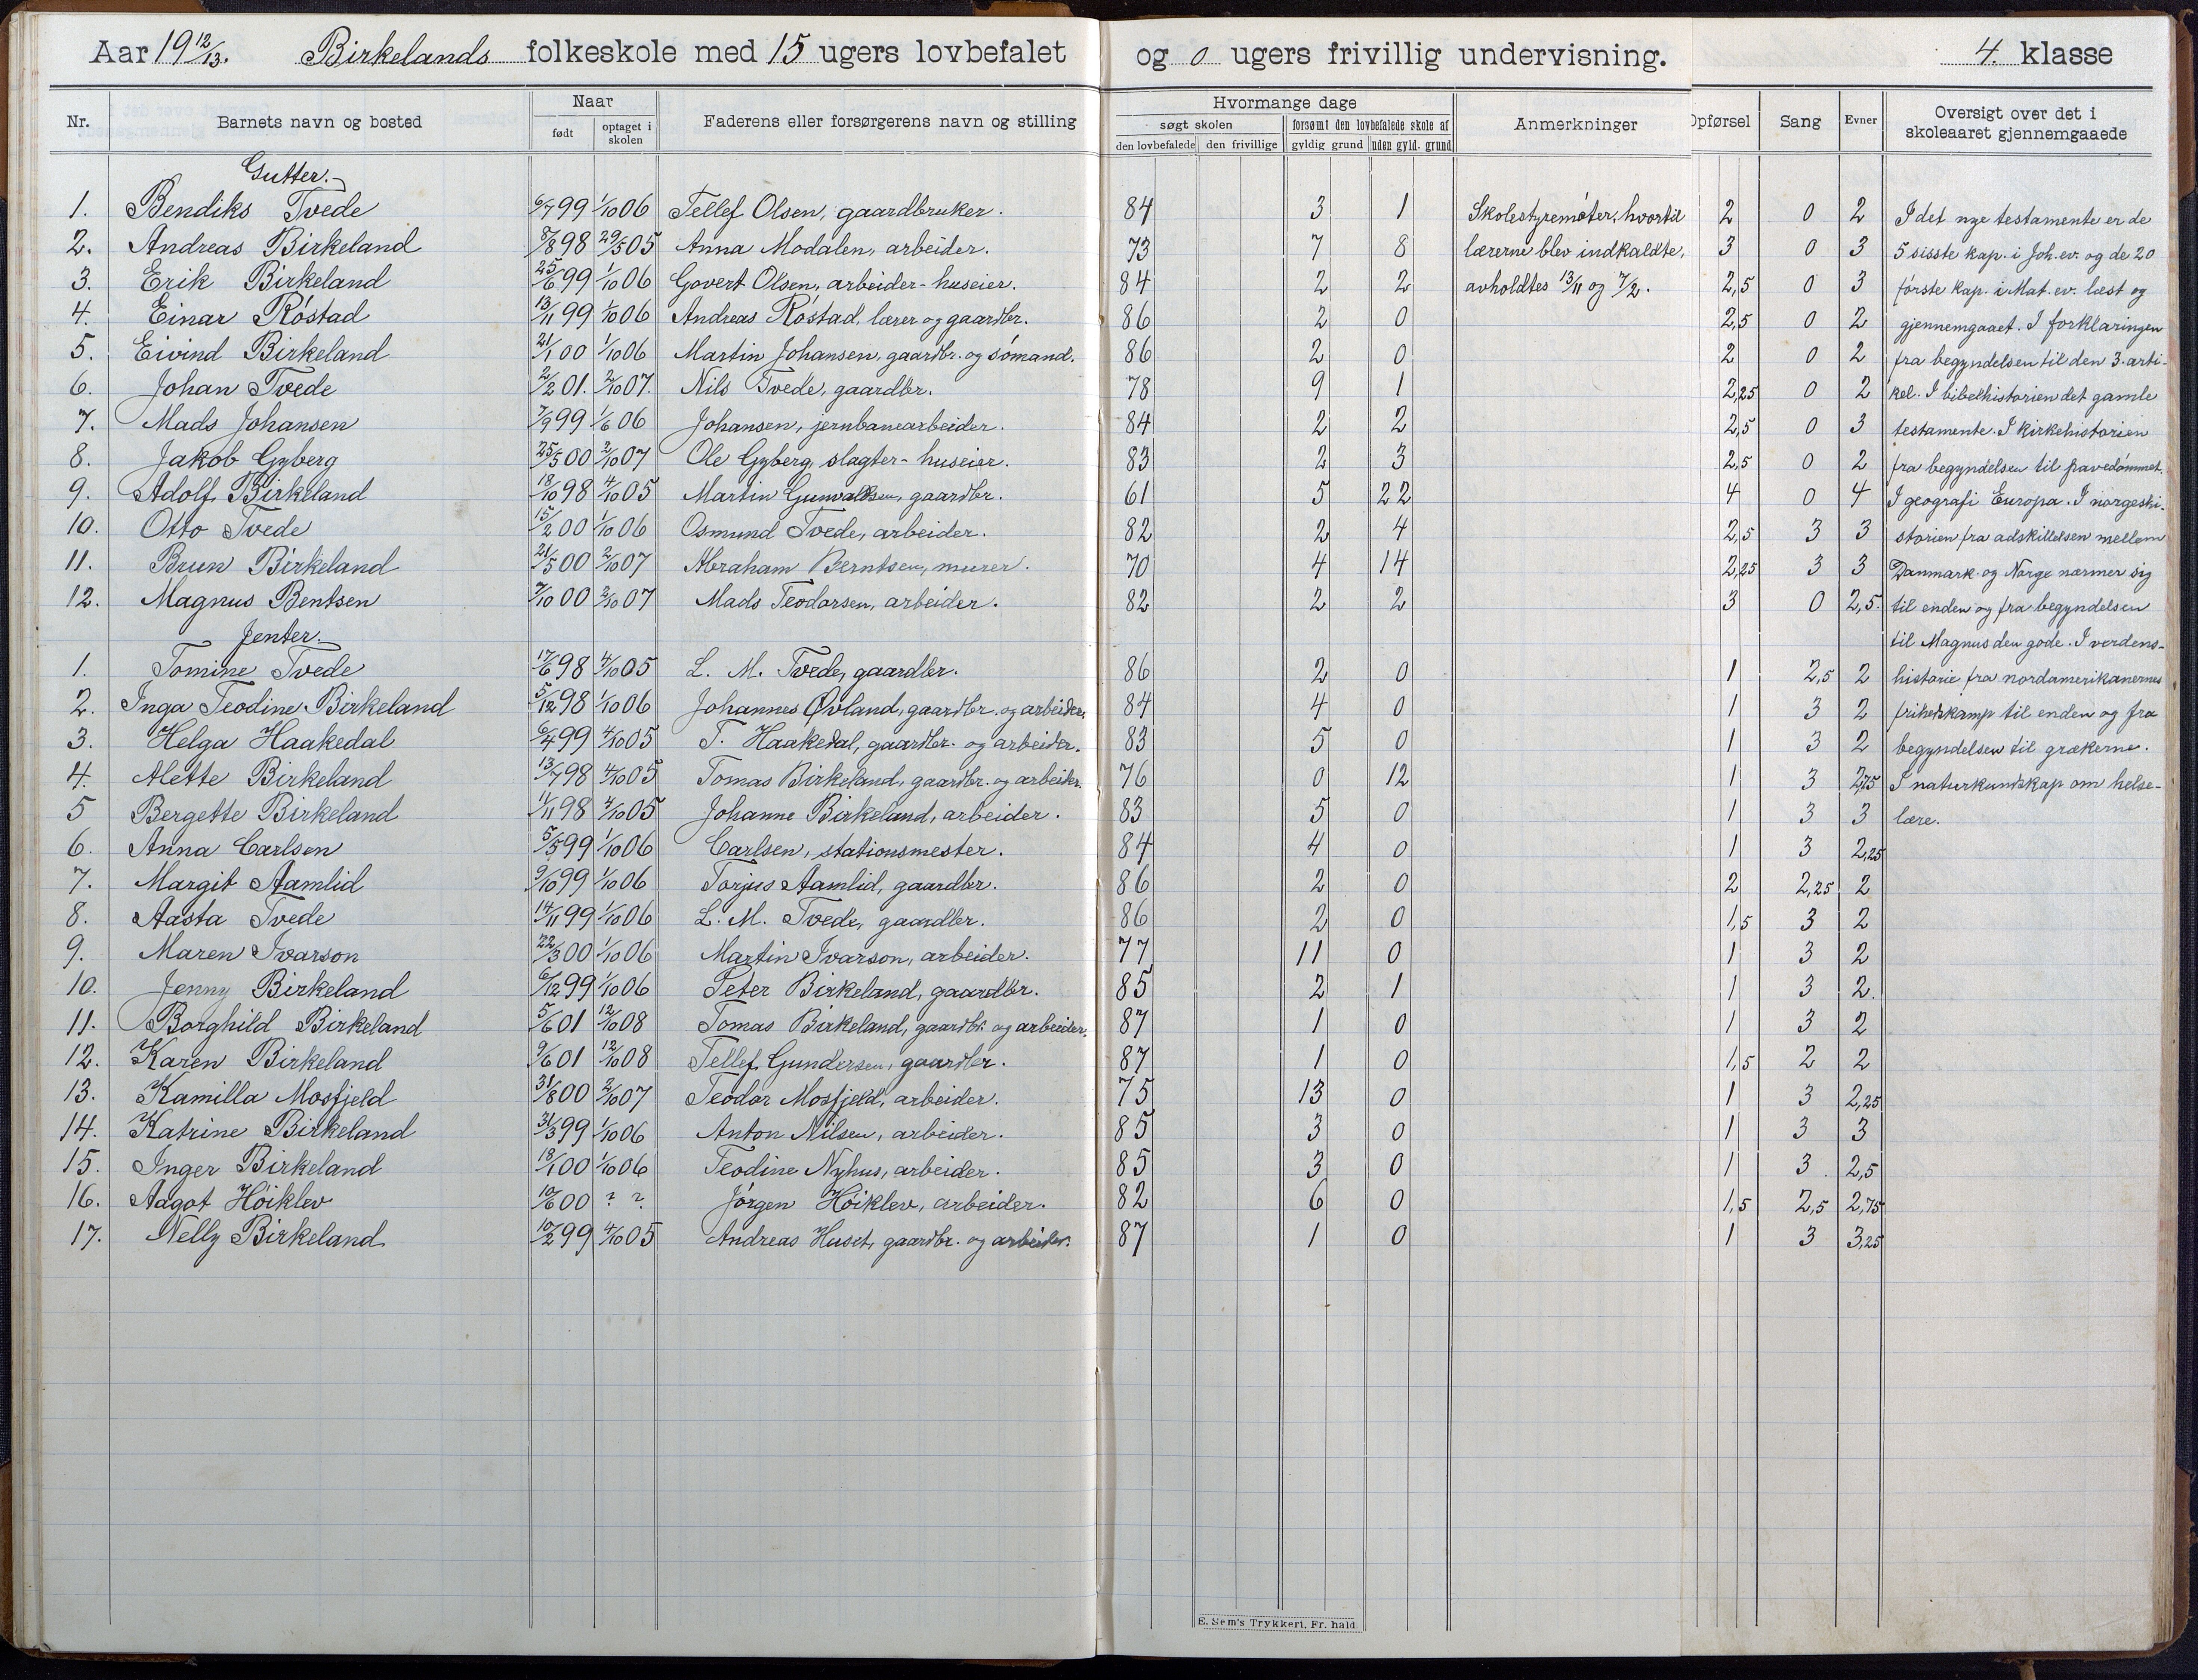 Aar 19 12/13. Birkelands folkeskole med 15 ugers lovbefalet og 0 ugers frivillig undervisning. 4. klasse
Nr. Barnets navn og bosted Naar født optaget i skolen Faderens eller forsørgerens navn og stilling Hvormange dage søgt skolen den lovbefalede den frivillige forsømt den lovbefalede skole af gyldig grund uden gyld. grund Anmerkninger Opførsel Sang Evner Oversigt over det i skoleaaret gjennemgaaede
Gutter.
1. Bendiks Tvede 6/7 99 1/10 06 Tellef Olsen, gaardbruker. 84 3 1 Skolestyremøter, hvortil 2 0 2 I det nye testamente er de
2. Andreas Birkeland 8/8 98 29/5 05 Anna Modalen, arbeider. 73 7 8 lærerne blev indkaldte, 3 0 3 5 sisste kap. i Joh. ev. og de 20
3. Erik Birkeland 25/6 99 1/10 06 Govert Olsen, arbeider - huseier. 84 2 2 avholdtes 13/11 og 7/2. 2,5 0 3 første kap. i Mat. ev. læst og
4. Einar Røstad 13/11 99 1/10 06 Andreas Røstad, lærer og gaardbr. 86 2 0 2,5 0 2 gjennemgaaet. I forklaringen
5. Eivind Birkeland 21/1 00 1/10 06 Martin Johansen, gaardbr. og sømand. 86 2 0 2 0 2 fra begyndelsen til den 3. arti-
6. Johan Tvede 2/2 01. 2/10 07. Nils Tvede, gaardbr. 78 9 1 2,25 0 2 kel. I bibelhistorien det gamle
7. Mads Johansen 7/9 99 1/6 06 Johansen, jernbanearbeider. 84 2 2 2,5 0 3 testamente. I kirkehistorien
8. Jakob Gyberg 25/5 00 2/10 07 Ole Gyberg, slagter - huseier. 83 2 3 2,5 0 2 fra begyndelsen til pavedømmet.
9. Adolf Birkeland 18/10 98 4/10 05 Martin Gunvaldsen, gaardbr. 61 5 22 4 0 4 I geografi Europa. I norgeshi-
10. Otto Tvede 15/2 00 1/10 06 Osmund Tvede, arbeider. 82 2 4 2,5 3 3 storien fra adskillelsen mellem
11. Brun Birkeland 21/5 00 2/10 07 Abraham Berntsen, murer. 70 4 14 2,25 3 3 Danmark og Norge nærmer sig
12. Magnus Bentsen 7/10 00 2/10 07 Mads Teodorsen, arbeider. 82 2 2 3 0 2,5. til enden og fra begyndelsen
Jenter. til Magnus den gode. I verdens-
1. Tomine Tvede 17/6 98 4/10 05 L. M. Tvede, gaardbr. 86 2 0 1 2,5 2 historie fra nordamerikanernes
2. Inga Teodine Birkeland 5/12 98 1/10 06 Johannes Øvland, gaardbr. og arbeider. 84 4 0 1 3 2 frihedskamp til enden og fra
3. Helga Haakedal 6/4 99 4/10 05 T. Haakedal, gaardbr. og arbeider. 83 5 0 1 3 2 begyndelsen til grækerne.
4. Alette Birkeland 13/7 98 4/10 05 Tomas Birkeland, gaardbr. og arbeider. 76 0 12 1 3 2,75 I naturkundskap om helse-
5 Bergette Birkeland 11/11 98 4/10 05 Johanne Birkeland, arbeider. 83 5 0 1 3 3 lære.
6. Anna Carlsen 5/5 99 1/10 06 Carlsen, stationsmester. 84 4 0 1 3 2,25
7. Margit Aamlid 9/10 99 1/10 06 Torjus Aamlid, gaardbr. 86 2 0 2 2,25 2
8. Aasta Tvede 14/11 99 1/10 06 L. M. Tvede, gaardbr. 86 2 0 1,5 3 2
9. Maren Ivarson 22/3 00 1/10 06 Martin Ivarson, arbeider. 77 11 0 1 3 2
10. Jenny Birkeland 6/12 99 1/10 06 Peter Birkeland, gaardbr. 85 2 1 1 3 2.
11. Borghild Birkeland 5/6 01 12/10 08 Tomas Birkeland, gaardbr. og arbeider. 87 1 0 1 3 2
12. Karen Birkeland 9/6 01 12/10 08 Tellef Gundersen, gaardbr. 87 1 0 1,5 2 2
13. Kamilla Mosfjeld 31/8 00 2/10 07 Teodor Mosfjeld, arbeider. 75 13 0 1 3 2,25
14. Katrine Birkeland 31/3 99 1/10 06 Anton Nilsen, arbeider. 85 3 0 1 3 3
15. Inger Birkeland 18/1 00 1/10 06 Teodine Nyhus, arbeider. 85 3 0 1 3. 2,5
16. Aagot Høiklev 10/6 00 ? ? Jørgen Høiklev, arbeider. 82 6 0 1,5 2,5 2,75
17. Nelly Birkeland 10/2 99 4/10 05 Andreas Huset, gaardbr. og arbeider. 87 1 0 1 3 3,25
E. Sem's Trykkeri, Fr. hald